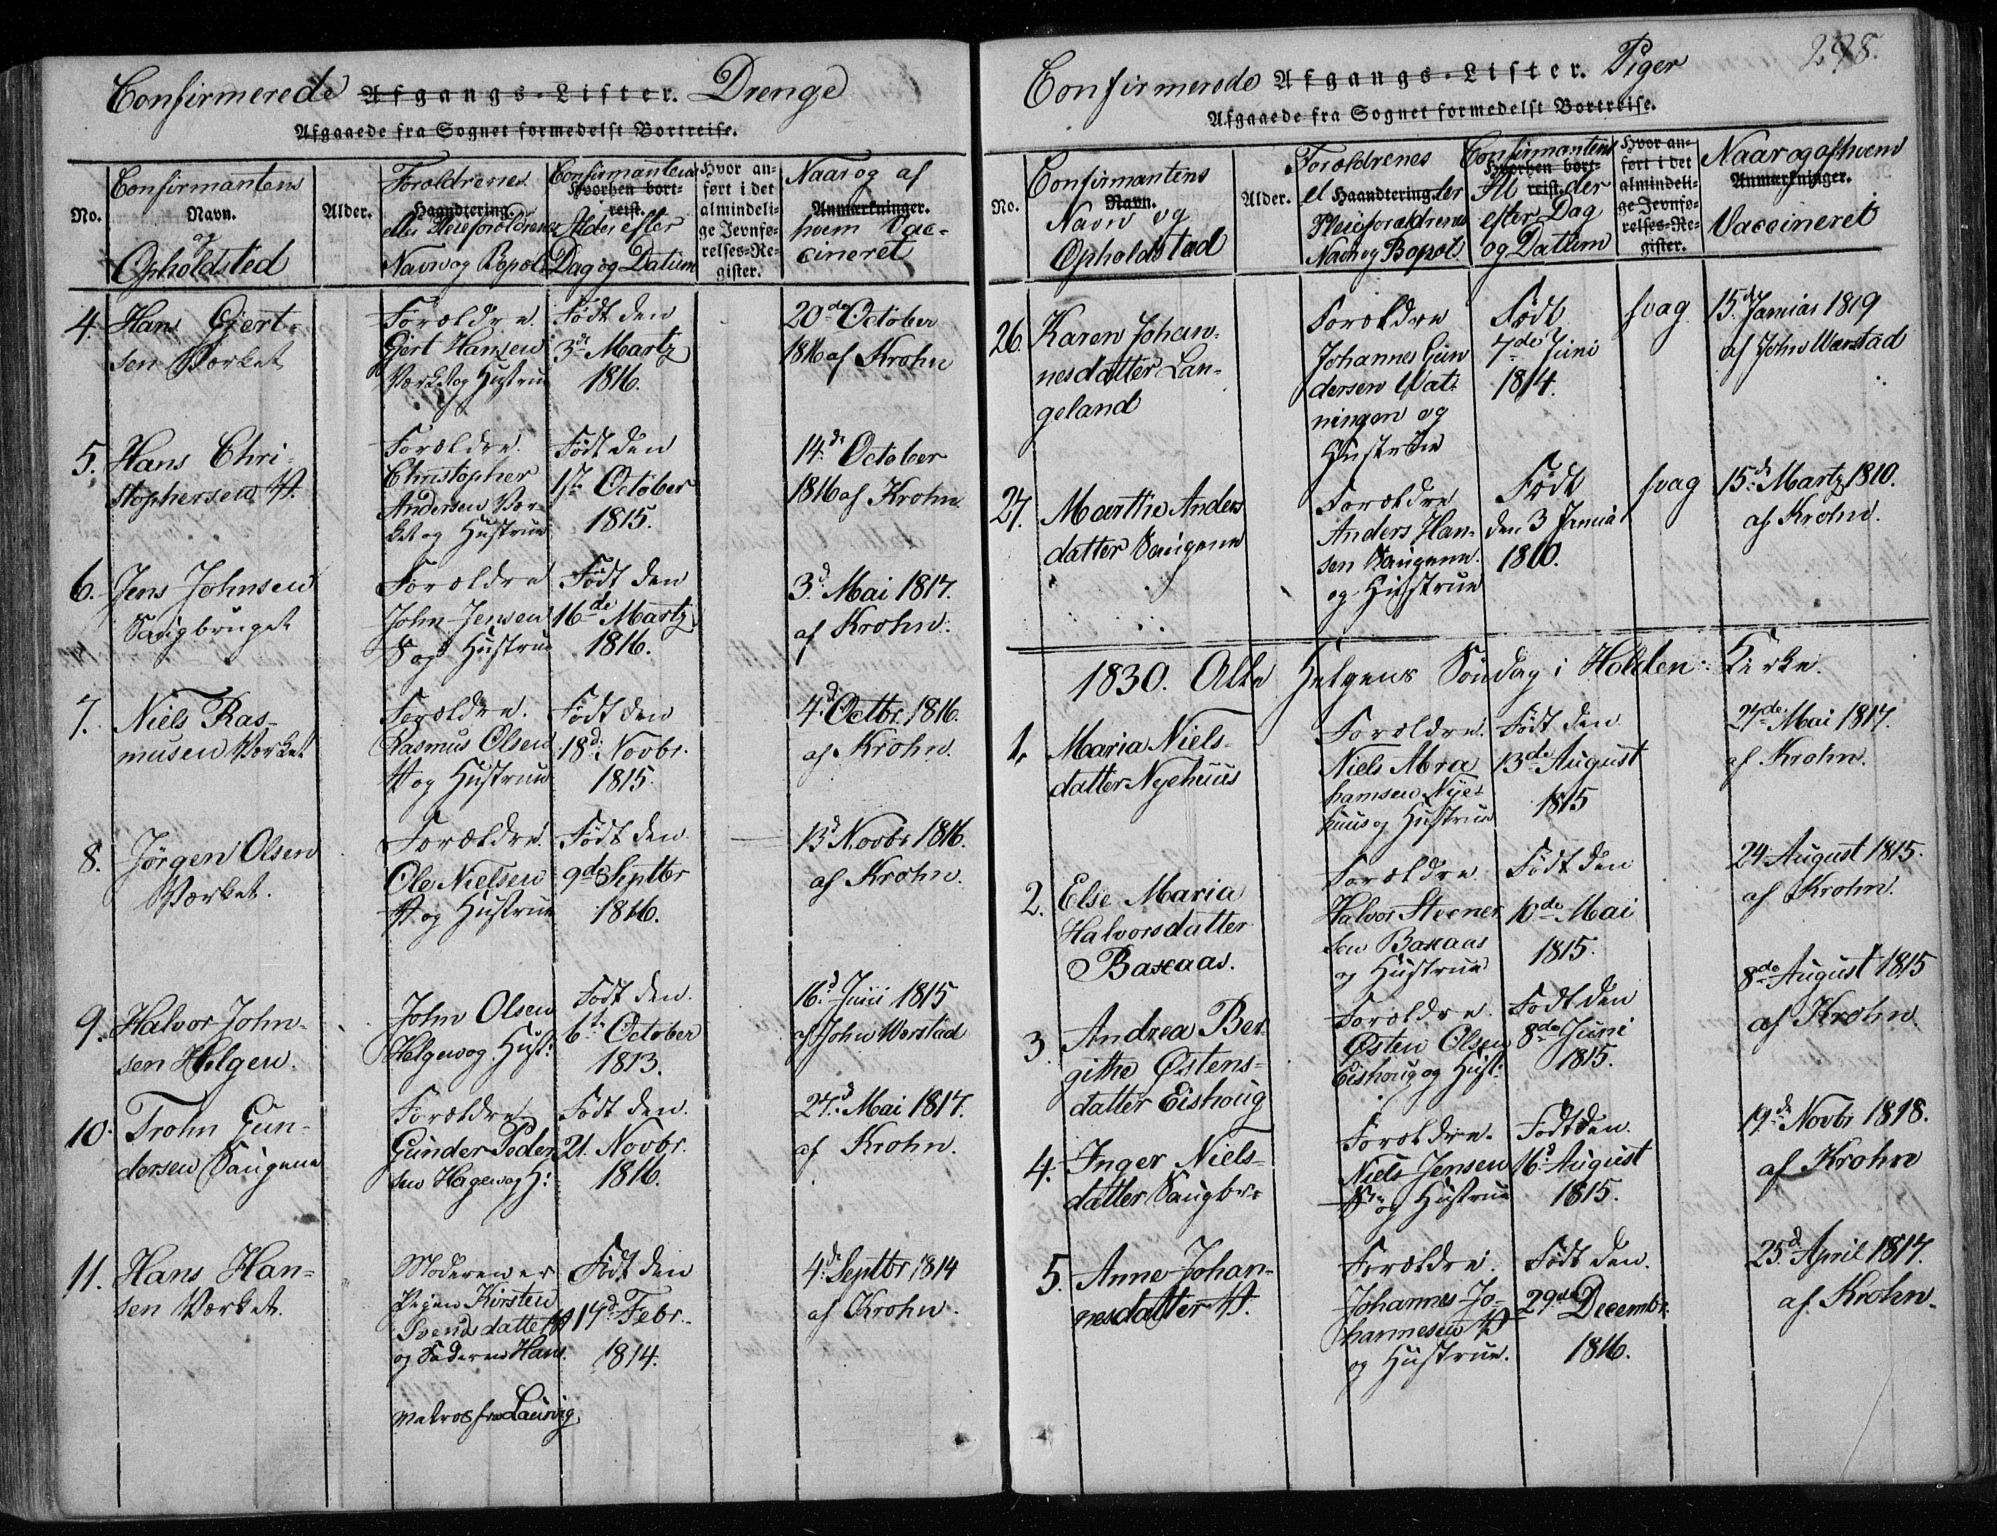 Confirmerede Afgangs-Lister. Drenge
Afgaaede fra Sognet formedelst Bortreise.
No.
Confirmantens
Navn.
og
Opholdsted
Alder.
Forældrenes
Haandtering.
eller Pleieforældrenes
Navn og Bopæl
Confirmantens
Hvorhen bort-
reist.
Alder efter
Dag og Datum
Hvor an-
ført i det
almindeli-
ge Jevnfø-
relses-Re-
gister.
Naar og af
Anmærkninger.
hvem Vac-
cineret
4. Hans Gjert-
sen Værket
Forældre.
Gjert Hansen
Værket og Hustrue
Født den
3de Martz
1816.
20de October
1816 af Krohn
5. Hans Chri-
stophersen V.
Forældre.
Christopher
Andersen Vær-
ket og Hustrue
Født den
17de October
1815.
14de October
1816 af Krohn
6. Jens Johnsen
Saugbruget
Forældre
John Jensen
S og Hustrue
Født den
16de Martz
1816.
3d Mai 1817.
af Krohn.
7. Niels Ras-
musen Værket
Forældre.
Rasmus Olsen
V og Hustrue
Født den
18d Novbr.
1815.
4d Octbr. 1816.
af Krohn.
8. Jörgen Olsen
Værket.
Forældre.
Ole Nielsen
V. og Hustrue
Født den
9de Septbr
1816.
13d Novbr 1816.
af Krohn.
9. Halvor John-
sen Helgen.
John Olsen
Helgen og Hust:
Født den.
6te October
1813.
16d Juni 1815
af John Værstad
10. Trohn Gun-
dersen Saugene
Forældre
Gunder Peder-
sen Hagen og H:
Født den.
21. Novbr.
1816.
27d Mai 1817.
af Krohn.
11. Hans Han-
sen Værket.
Moderen er
Pigen Kirsten
Svendsdatter V
og Faderen Hans
matros fra Laurvig.
Født den
17d Febr.
1814.
4de Septbr 1814
af Krohn.
298.
Confirmerede Afgangs-Lister. Piger
Afgaaede fra Sognet formedelst Bortreise.
No.
Confirmantens
Navn.
Navn og
Opholdstad
Alder.
Forældrenes
el Haandtering. ler
Pleieforældrenes
Navn og Bopæl
Confirmantens
Hvorhen bort-
Al reist. der
efter Dag
og Datum
Hvor an-
ført i det
almindeli-
ge Jevnfø-
relses-Re-
gister.
Naar og af hvem
Anmærkninger.
Vaccineret
26. Karen Johan-
nesdatter Lan-
geland
Forældre
Johannes Gun
dersen
ningen og
Hustrue
Født
7de Juni
1814.
svag
15d Januar 1819
af John Værstad
27. Marthe Anders
datter Saugene
Forældre
Anders Han-
sen Saugene
og Hustrue
Født
den 3 Janua
1810.
svag
15de Martz 1810.
af Krohn.
1830. Alle Helgens Søndag i Holden Kirke.
1. Maria Niels-
datter Nyehuus
Forældre.
Niels Abra
hamsen Nye-
huus og Hustrue
Født den
13de August
1815
27de Mai 1817.
af Krohn.
2. Else Maria
Halvorsdatter
Baxaas.
Forældre
Halvor Steener
sen Baxaas
og Hustrue
Født den
10de Mai
1815.
24 August 1815.
af Krohn.
3 Andrea Ber
githe Østens-
datter Eishoug
Forældre.
Østen Olsen
Eishoug og Hust:
Født den
8de Juni
1815.
8de August 1815
af Krohn.
4. Inger Niels-
datter Saugbr:
Forældre.
Niels Jensen
S og Hustrue
Født den.
16d August
1815.
19de Novbr 1818.
af Krohn
5. Anne Johan-
nesdatter V.
Forældre.
Johannes Jo-
hannesen V
og Hustrue.
Født den.
29de Decembr.
1816.
25d April 1817.
af Krohn.